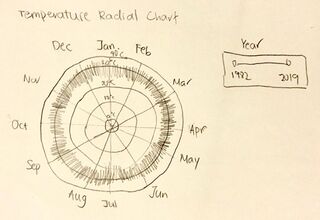 Temperature Radial Chart
Dec
Jan
Feb
Nov
Mar
Oct
Apr
Sep
May
Aug
Jul
Jun
Year
1982
2019